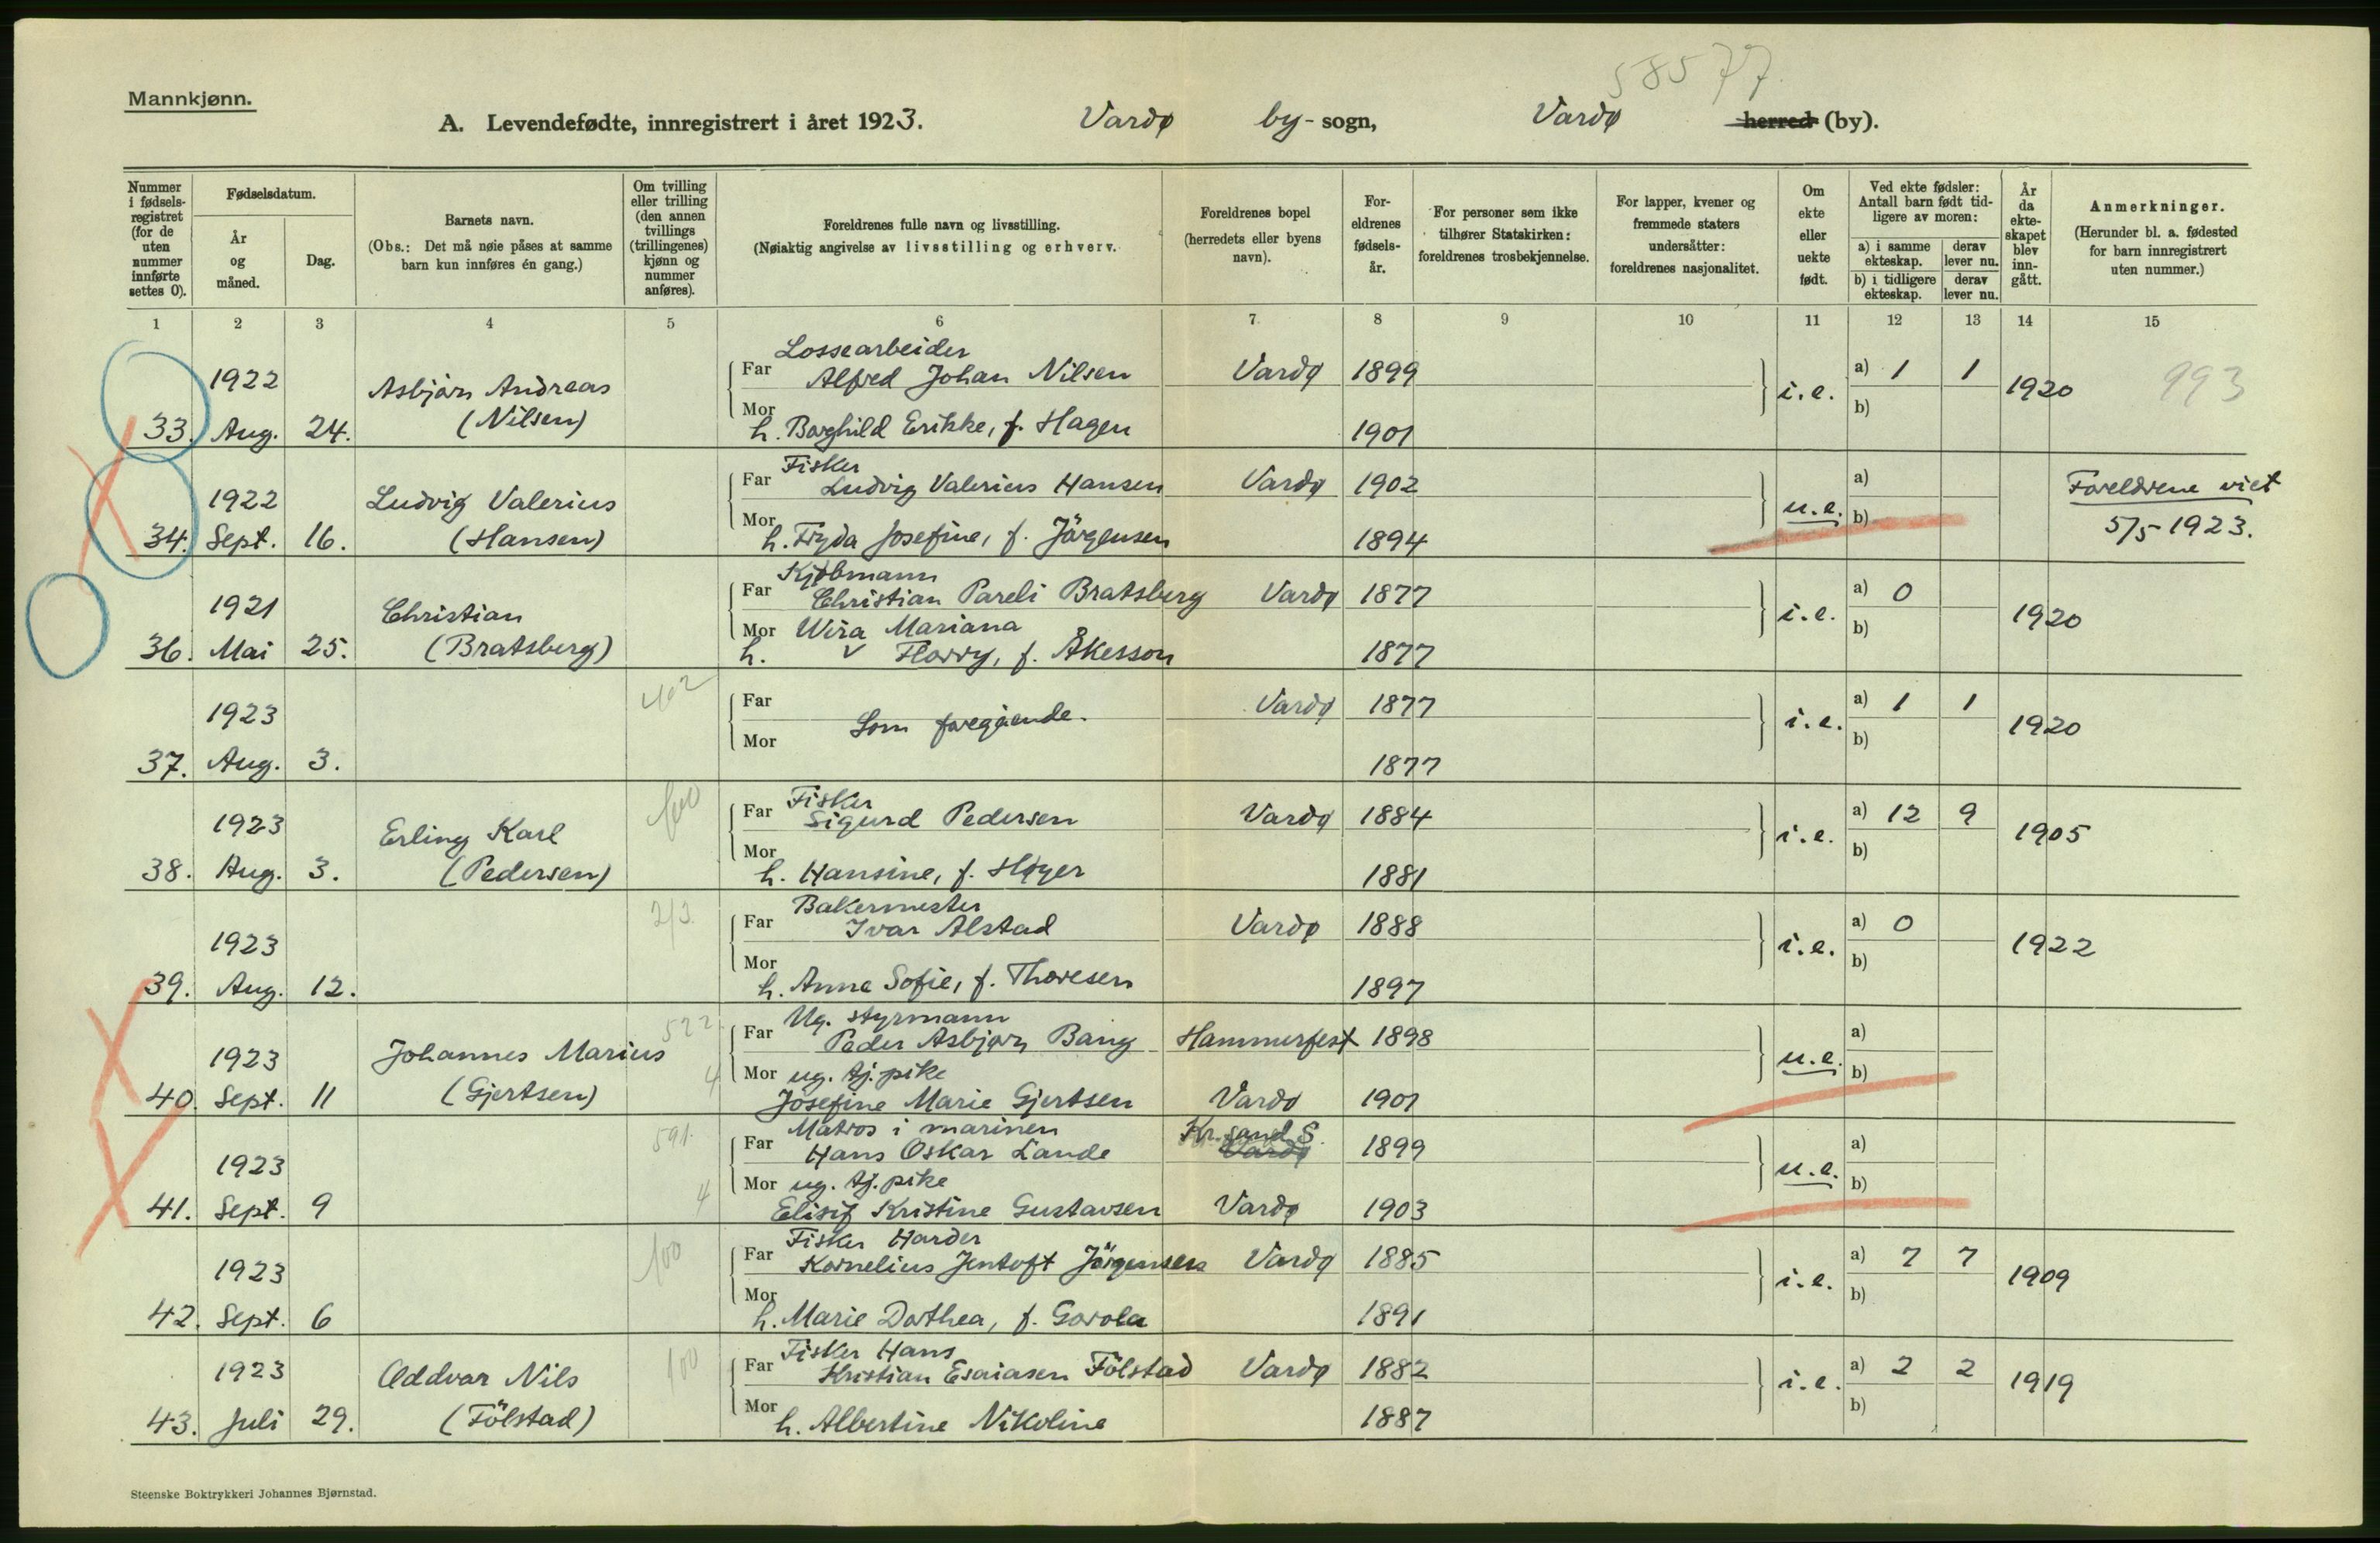 58577
Mannkjønn.
A. Levendefødte, innregistrert i året 1923. Vardø by- sogn, Vardø herred (by).
Nummer i fødselsregistret (for de uten nummer innførte settes 0).
Fødselsdatum.
År og måned.
Dag.
Barnets navn.
(Obs.: Det må nøie påses at samme barn kun innføres én gang.)
Om tvilling eller trilling (den annen tvillings (trillingenes) kjønn og nummer anføres).
Foreldrenes fulle navn og livsstilling.
(Nøiaktig angivelse av livsstilling og erhverv.
Foreldrenes bopel (herredets eller byens navn).
Foreldrenes fødselsår.
For personer sem ikke tilhører Statskirken: foreldrenes trosbekjennelse.
For lapper, kvener og fremmede staters undersåtter: foreldrenes nasjonalitet.
Om ekte eller uekte født.
Ved ekte fødsler: Antall barn født tidligere av moren:
a) i samme ekteskap.
derav lever nu.
b) i tidligere ekteskap.
derav lever nu.
År da ekteskapet blev inngått.
Anmerkninger.
(Herunder bl. a. fødested for barn innregistrert uten nummer.)
1 2 3 4 5 6 7. 8 9 10 11 12 13 14 15
Lossearbeider
1922 Asbjørn Andreas Far Alfred Johan Nilsen Vardø 1899 i.e. a) 1 1 1920 993
33. Aug. 24. (Nilsen) Mor h. Borghild Erikke, f. Hagen 1901 b)
Fisker
1922 Ludvig Valerius Far Ludvig Valerius Hansen Vardø 1902 u.e. a) Foreldrene viet
34. Sept. 16. (Hansen) Mor h. Fryda Josefine, f. Jörgensen 1894 b) 5/5 1923.
Kjøbmann
1921 Christian Far Christian Pareli Bratsberg Vardø 1877 i.e. a) 0 1920
Mor Wira Mariana b)
36. Mai 25. (Bratsberg) h. Florry, f. Åkesson 1877
402
1923 Far Som foregående. Vardø 1877 i.e. a) 1 1 1920
37. Aug. 3. Mor 1877 b)
Fisker
1923 Erling Karl Far Sigurd Pedersen Vardø 1884 i.e. a) 12 9 1905
38. Aug. 3. (Pedersen) Mor h. Hansine, f. Høyer 1881 b)
213 Bakermester
1923 Far Ivar Alstad Vardø 1888 i.e. a) 0 1922
39. Aug. 12. Mor h. Anna Sofie, f. Thoresen 1897 b)
522 Ug. styrmann
1923 Johannes Marius Far Peder Asbjørn Bang Hammerfest 1898 u.e. a)
4 Mor ug. tj. pike b)
40. Sept. 11 (Gjertsen) Josefine Marie Gjertsen Vardø 1901
591. Matros i marinen Kr.sand S.
1923 Far Hans Oskar Lande Vardø 1899 u.e. a)
4 Mor ug. tj. pike b)
41. Sept. 9 Elisif Kristine Gustavsen Vardø 1903
100 Fisker Harder
1923 Far Kornelius Jentoft Jörgensen Vardø 1885 i.e. a) 7 7 1909
42. Sept. 6 Mor h. Marie Dorthea, f. Gorola 1891 b)
100 Fisker Hans
1923 Oddvar Nils Far Kristian Esaiasen Fölstad Vardø 1882 i.e. a) 2 2 1919
43. Juli 29. (Fölstad) Mor h. Albertine Nikoline 1887 b)
Steenske Boktrykkeri Johannes Bjørnstad.